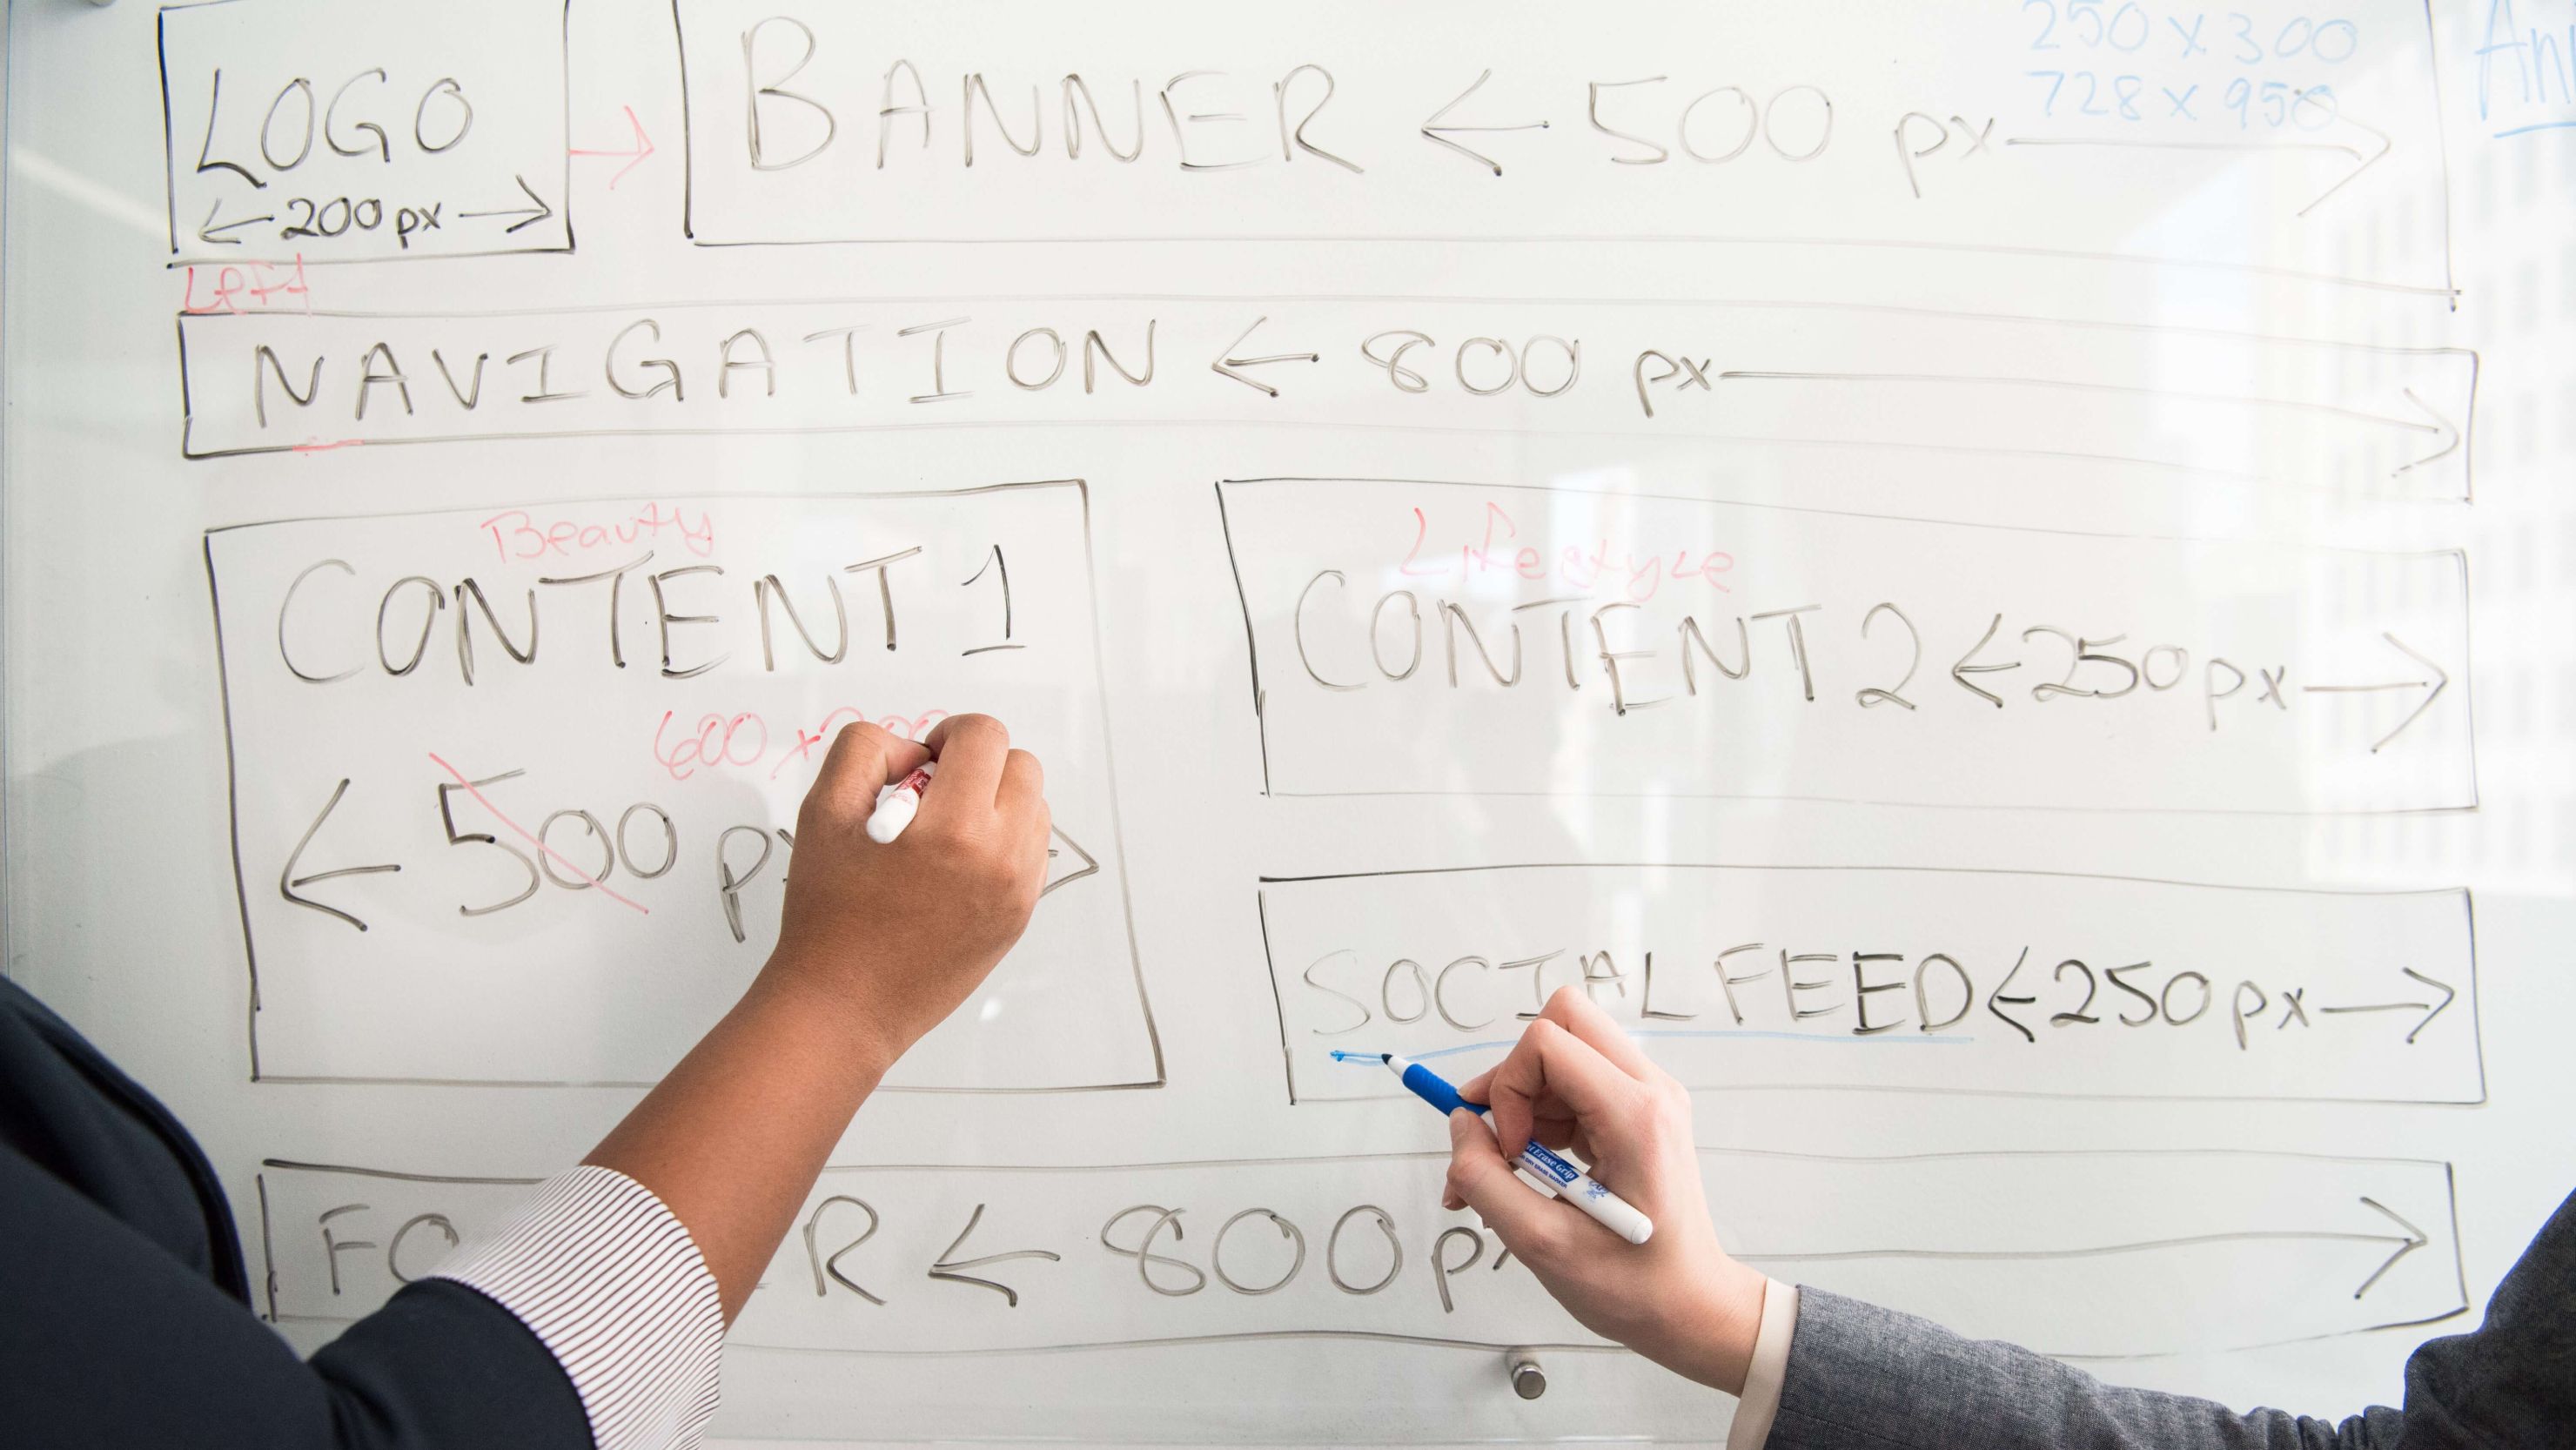 LOGO
←200px→
Left
BANNER ← 500 px →
250 x 300
728 x 950
NAVIGATION ← 800 px →
Beauty
CONTENT 1
600 x
← 500 px →
Lifestyle
CONTENT 2 ←250px→
SOCIAL FEED ←250px→
← 800px →